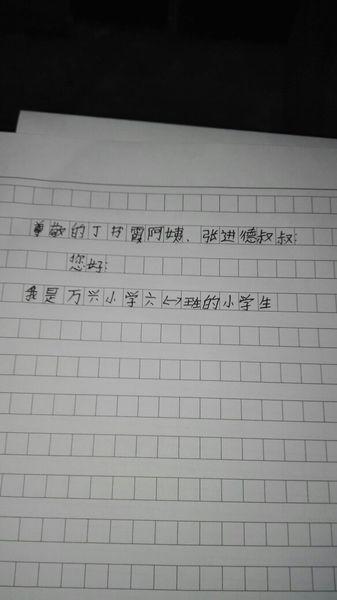 尊敬的丁阿姨、张进德叔叔:
您好:
我是万兴小学六(一)班的小学生